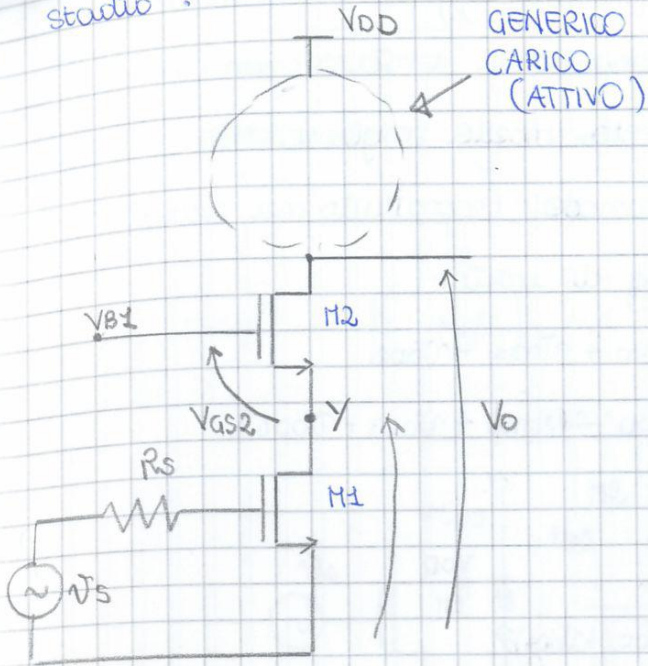 stadio :
VDD
GENERICO
CARICO
(ATTIVO)
VB1
M2
VGS2
Y
Vo
RS
M1
vs